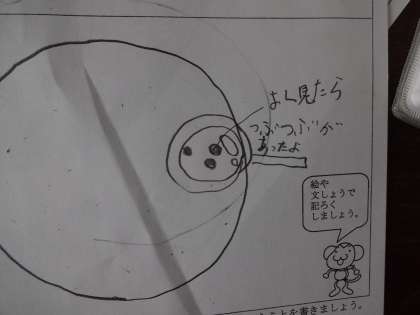 よく見たら
つぶつぶが
あったよ
絵や
文しようで
記ろく
しましょう。
ことを書きましょう。